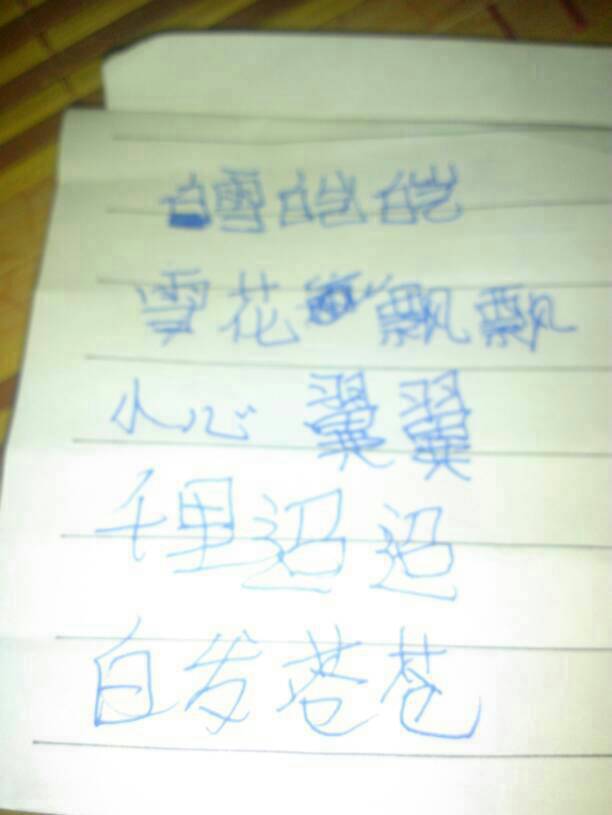 白雪皑皑
雪花飘飘
小心翼翼
千里迢迢
白发苍苍